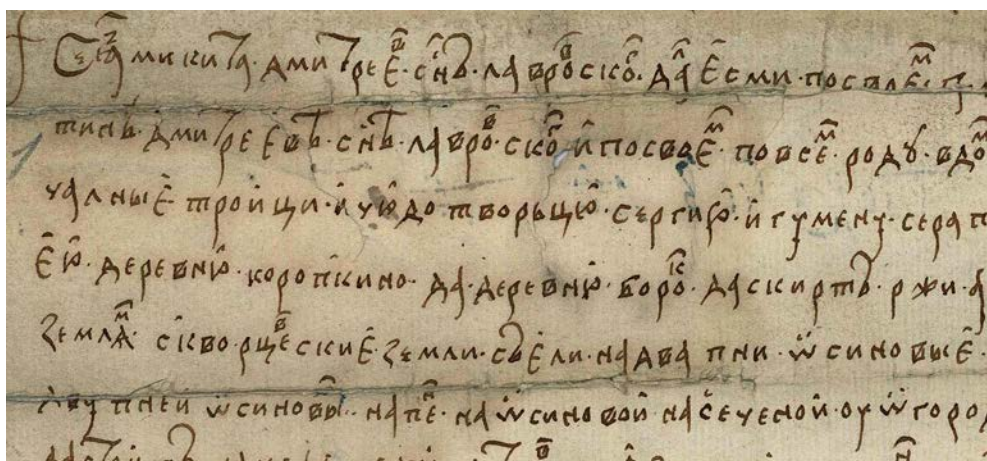 Се яз микита дмитреев сн лавровского дал есми по своем
дмитреевъ снъ лавровской и по своем по всем роду в дом
чалные троици и чюдотворьцю сергию игумену серап
ею деревню коропкино да деревню борок да скиртъ ржи а
землям скворцевские земли съ ели на два пни ѡсиновые
дву пней ѡсиновы на пен на ѡсиновой на сеченой оу ѡгоро